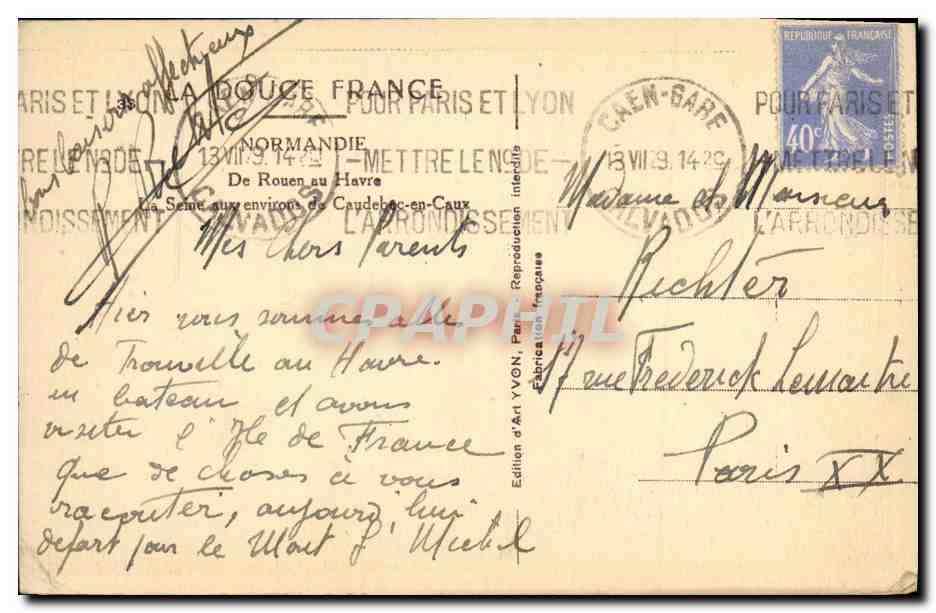 LA DOUCE FRANCE
NORMANDIE
De Rouen au Havre
La Seine aux environs de Caudebec-en-Caux
Mes Chers Parents
Hier nous sommes allés
de Trouville au Havre
en bateau et avons
visiter l'Ile de France
que de choses à vous
raconter, aujourd'hui
départ pour le Mont St Michel
bons baisers affectueux
Edition d'Art YVON, Paris. Reproduction interdite
Fabrication française
ARIS ET LYON
TTRE LE NO DE
NDISSEMENT
13 VII 29. 14
CALVADOS
POUR PARIS ET LYON
-METTRE LE NO DE-
L'ARRONDISSEMENT
CAEN-GARE
13 VII 29. 14
CALVADOS
POUR PARIS ET
METTRE LE NO
L'ARRONDISSEM
REPUBLIQUE FRANÇAISE
40c
POSTES
Madame de Monsieur
Richter
17 rue Fréderick Lemaitre
Paris XX
CPAPHIL